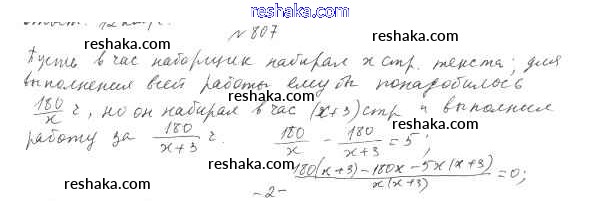 reshaka.com
№ 807
reshaka.com
Пусть в час наборщик набирал x стр. текста; для
выполнения всей работы ему бы понадобилось
reshaka.com
180/x ч, но он набирал в час (x+3) стр и выполнил
reshaka.com
работу за 180/(x+3) ч. 180/x - 180/(x+3) = 5;
reshaka.com
(180(x+3) - 180x - 5x(x+3))/(x(x+3)) = 0;
reshaka.com
-2-